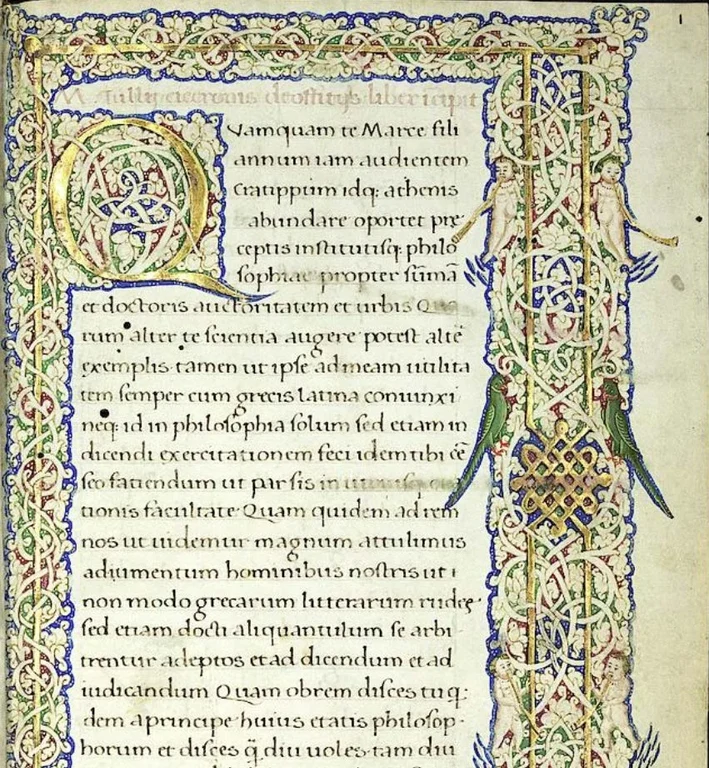 1
M. Tullii ciceronis de offitijs liber icipit
Quamquam te Marce fili
annum iam audientem
Cratippum idq; athenis
abundare oportet pre
ceptis institutisq; philo
sophiae propter sũmã
et doctoris auctoritatem et urbis Quo
rum alter te scientia augere potest altẽ
exemplis tamen ut ipse ad meam utilita
tem semper cum grecis latina coniunxi
neq; id in philosophia solum sed etiam in
dicendi exercitationem feci idem tibi cẽ
seo faciendum ut par sis in
tionis facultate Quam quidem ad rem
nos ut uidemur magnum attulimus
adiumentum hominibus nostris ut i
non modo grecarum litterarum rudes
sed etiam docti aliquantulum se arbi
trentur adeptos et ad dicendum et ad
iudicandum Quam obrem disces tu q;
dem a principe huius etatis philosop
horum et disces q̃ diu uoles tam diu